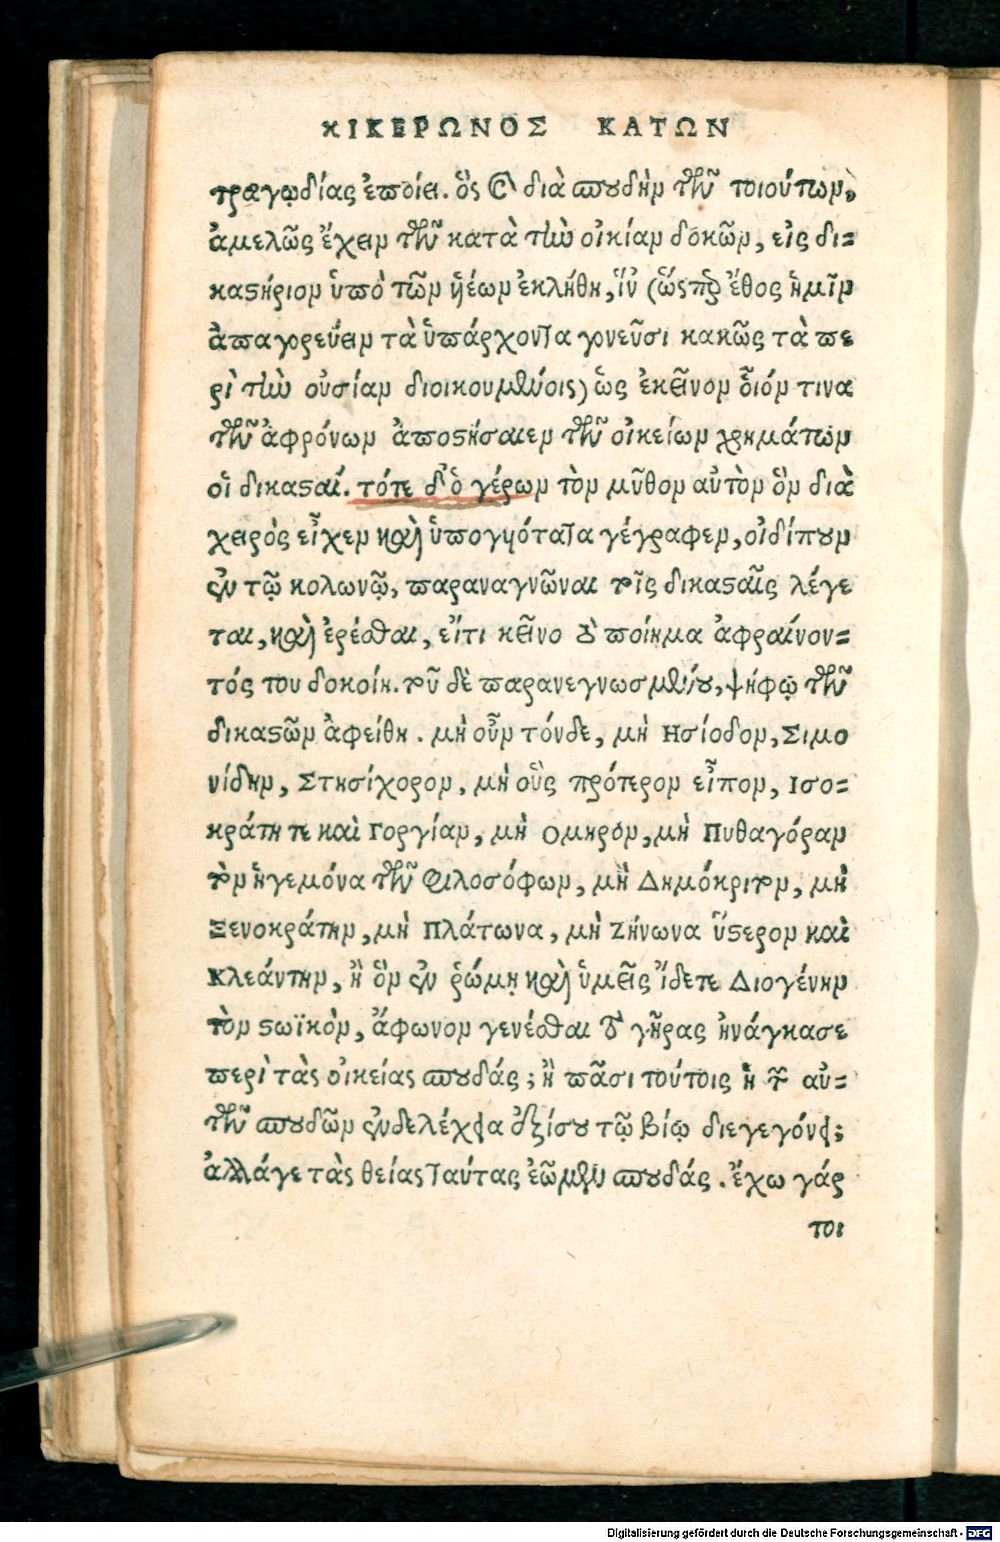 ΚΙΚΕΡΩΝΟΣ ΚΑΤΩΝ
τραγῳδίας ἐποίει. ὃς καὶ διὰ σπουδὴν τῶν τοιούτων,
ἀμελῶς ἔχειν τῶν κατὰ τὴν οἰκίαν δοκῶν, εἰς δι=
καστήριον ὑπὸ τῶν ὑέων ἐκλήθη, ἵν (ὥσπερ ἔθος ἡμῖν
ἀπαγορεύειν τὰ ὑπάρχοντα γονεῦσι κακῶς τὰ πε
ρὶ τὴν οὐσίαν διοικουμένοις) ὡς ἐκεῖνον οἷόν τινα
τῶν ἀφρόνων ἀποστήσαιεν τῶν οἰκείων χρημάτων
οἱ δικασταί. τότε δ' ὁ γέρων τὸν μῦθον αὐτὸν ὃν διὰ
χειρὸς εἶχεν καὶ ὑπογυότατα γέγραφεν, οἰδίπουν
ἐν τῷ κολωνῷ, παραναγνῶναι τοῖς δικασταῖς λέγε
ται, καὶ ἐρέσθαι, εἴτι κεῖνο τὸ ποίημα ἀφραίνον=
τός του δοκοίη. τοῦ δὲ παρανεγνωσμένου, ψήφῳ τῶν
δικαστῶν ἀφείθη. μὴ οὖν τόνδε, μὴ Ησίοδον, Σιμο
νίδην, Στησίχορον, μὴ οὓς πρότερον εἶπον, Ισο=
κράτη τε καὶ Γοργίαν, μὴ Ομηρον, μὴ Πυθαγόραν
τὸν ἡγεμόνα τῶν Φιλοσόφων, μὴ Δημόκριτον, μὴ
Ξενοκράτην, μὴ Πλάτωνα, μὴ Ζήνωνα ὕστερον καὶ
Κλεάντην, ἢ ὃν ἐν ῥώμῃ καὶ ὑμεῖς ἴδετε Διογένην
τὸν στωϊκὸν, ἄφωνον γενέσθαι τὸ γῆρας ἠνάγκασε
περὶ τὰς οἰκείας σπουδάς; ἢ πᾶσι τούτοις ἡ τῶν αὐ=
τῶν σπουδῶν ἐνδελέχεια ἐξίσου τῷ βίῳ διεγεγόνει;
ἀλλάγε τὰς θείας ταύτας ἐῶμεν σπουδάς. ἔχω γάρ
τοι
Digitalisierung gefördert durch die Deutsche Forschungsgemeinschaft - DFG